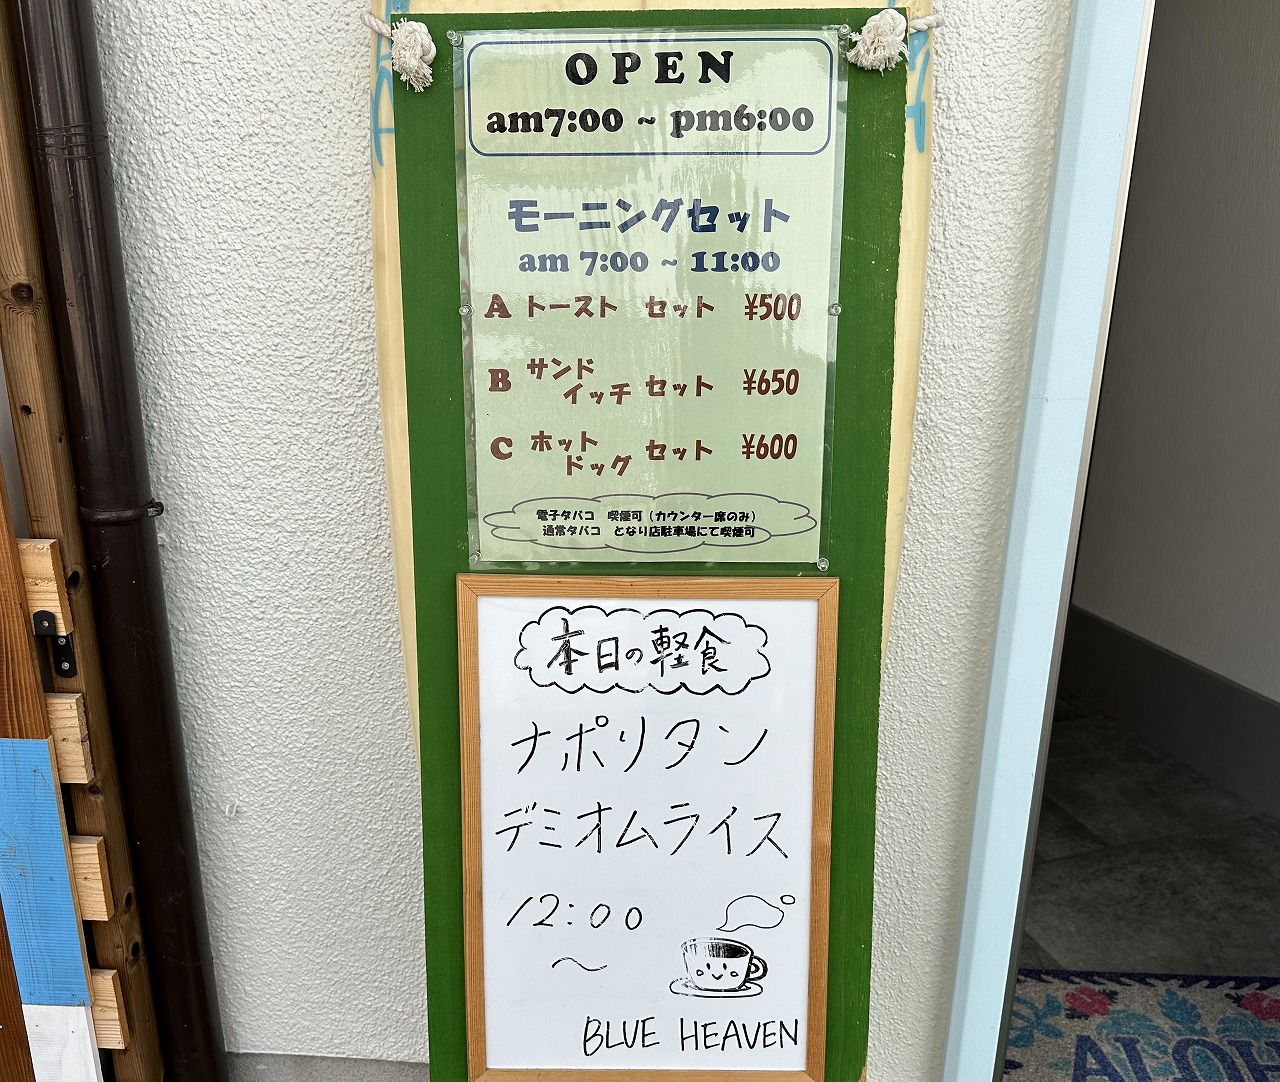 OPEN
am7:00 ~ pm6:00
モーニングセット
am 7:00 ~ 11:00
A トースト セット ¥500
B サンドイッチ セット ¥650
C ホットドッグ セット ¥600
電子タバコ 喫煙可（カウンター席のみ）
通常タバコ となり店駐車場にて喫煙可
本日の軽食
ナポリタン
デミオムライス
12:00
～
BLUE HEAVEN
ALOH